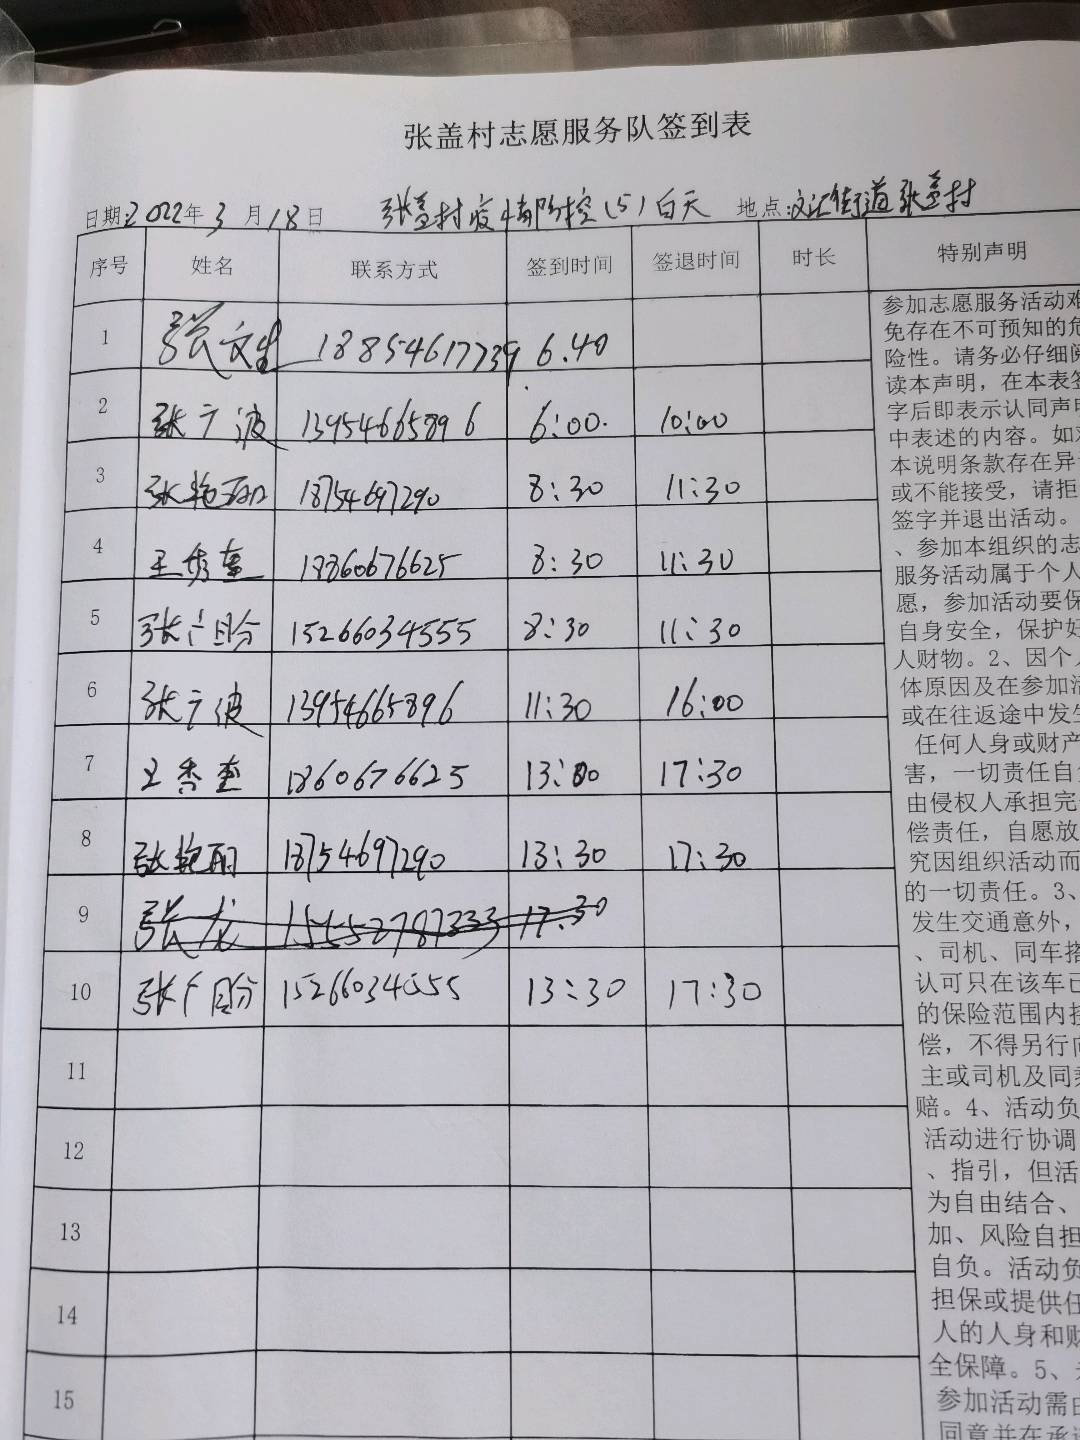 张盖村志愿服务队签到表
日期:2022年3月18日 张盖村疫情防控(5)白天 地点:文汇街道张盖村
序号 姓名 联系方式 签到时间 签退时间 时长 特别声明
1 张文生 18854617739 6.40
2 张广波 13954665896 6:00. 10:00
3 张艳丽 18754697290 8:30 11:30
4 王秀奎 18860676625 8:30 11:30
5 15266034555 8:30 11:30
6 张广波 13954665896 11:30 16:00
7 王秀奎 1860676625 13:00 17:30
8 张艳丽 18754697290 13:30 17:30
9 张龙 15552787333 17:30
10 15266034555 13:30 17:30
11
12
13
14
15
参加志愿服务活动难
免存在不可预知的危
险性。请务必仔细阅
读本声明，在本表签
字后即表示认同声明
中表述的内容。如对
本说明条款存在异
或不能接受，请拒
签字并退出活动。
、参加本组织的志
服务活动属于个人
愿，参加活动要保
自身安全，保护好
人财物。2、因个人
体原因及在参加活
或在往返途中发生
任何人身或财产
害，一切责任自
由侵权人承担完
偿责任，自愿放
究因组织活动而
的一切责任。3、
发生交通意外，
、司机、同车搭
认可只在该车已
的保险范围内
偿，不得另行向
主或司机及同乘
赔。4、活动负
活动进行协调
、指引，但活
为自由结合、
加、风险自担
自负。活动负
担保或提供任
人的人身和财
全保障。5、
参加活动需由
同意并在承